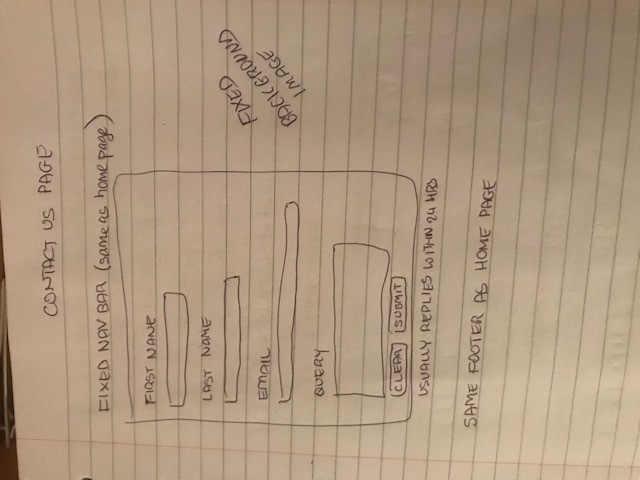 CONTACT US PAGE
FIXED NAV BAR (same as home page)
FIRST NAME
LAST NAME
EMAIL
QUERY
CLEAR SUBMIT
USUALLY REPLIES WITHIN 24 HRS
FIXED
BACKGROUND
IMAGE
SAME FOOTER AS HOME PAGE